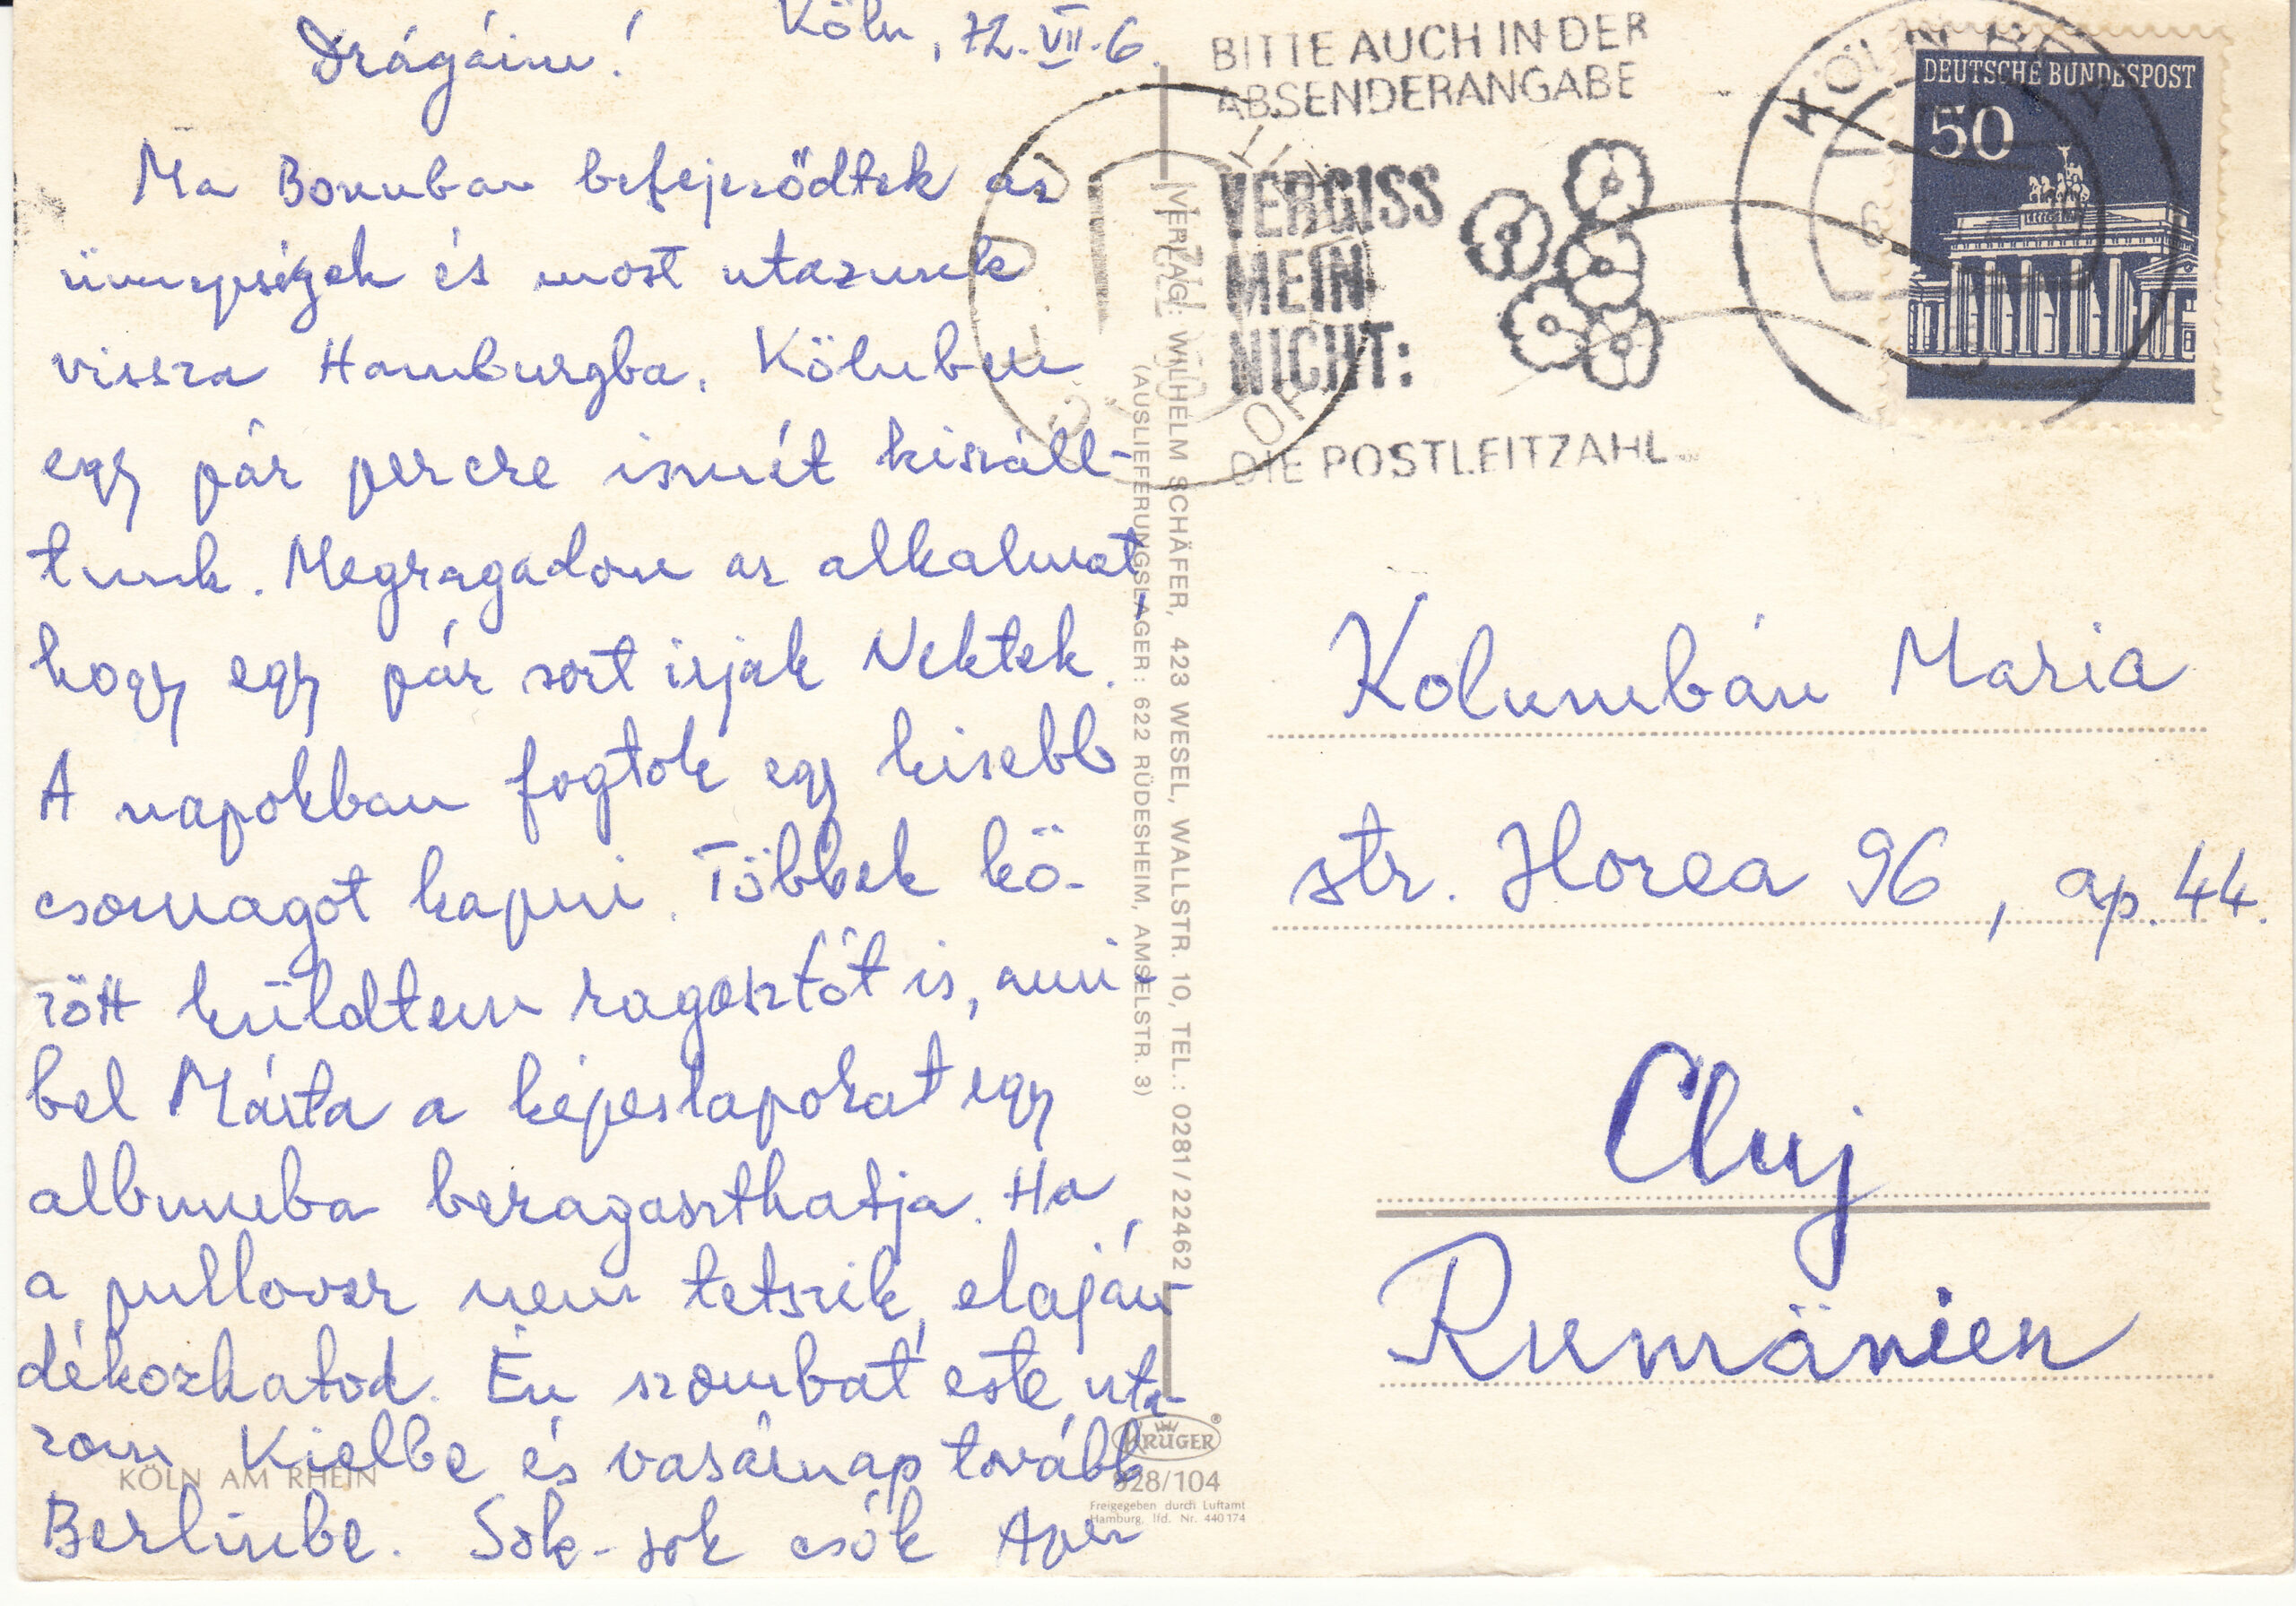 Köln, 72.VII.6.
Drágáim!
Ma Bonnban befejeződtek az
ünnepségek és most utazunk
vissza Hamburgba. Kölnben
egy pár percre ismét kiszáll-
tunk. Megragadom az alkalmat,
hogy egy pár sort irjak Nektek.
A napokban fogtok egy kisebb
csomagot kapni. Többek kö-
zött küldtem ragasztót is, ami-
bel Márta a képeslapokat egy
albumba beragaszthatja. Ha
a pullover nem tetszik, elaján-
dékozhatod. Én szombat este uta-
zom Kielbe és vasárnap tovább
Berlinbe. Sok-sok csók Apu
KÖLN AM RHEIN
VERLAG: WILHELM SCHÄFER, 423 WESEL, WALLSTR. 10, TEL.: 0281/22462
(AUSLIEFERUNGSLAGER: 622 RÜDESHEIM, AMSELSTR. 3)
KRÜGER
928/104
Freigegeben durch Luftamt
Hamburg, lfd. Nr. 440174
BITTE AUCH IN DER
ABSENDERANGABE
VERGISS
MEIN
NICHT:
DIE POSTLEITZAHL
KÖLN
DEUTSCHE BUNDESPOST
50
CLUJ
Kolumbán Maria
str. Horea 96, ap. 44.
Cluj
Rumänien